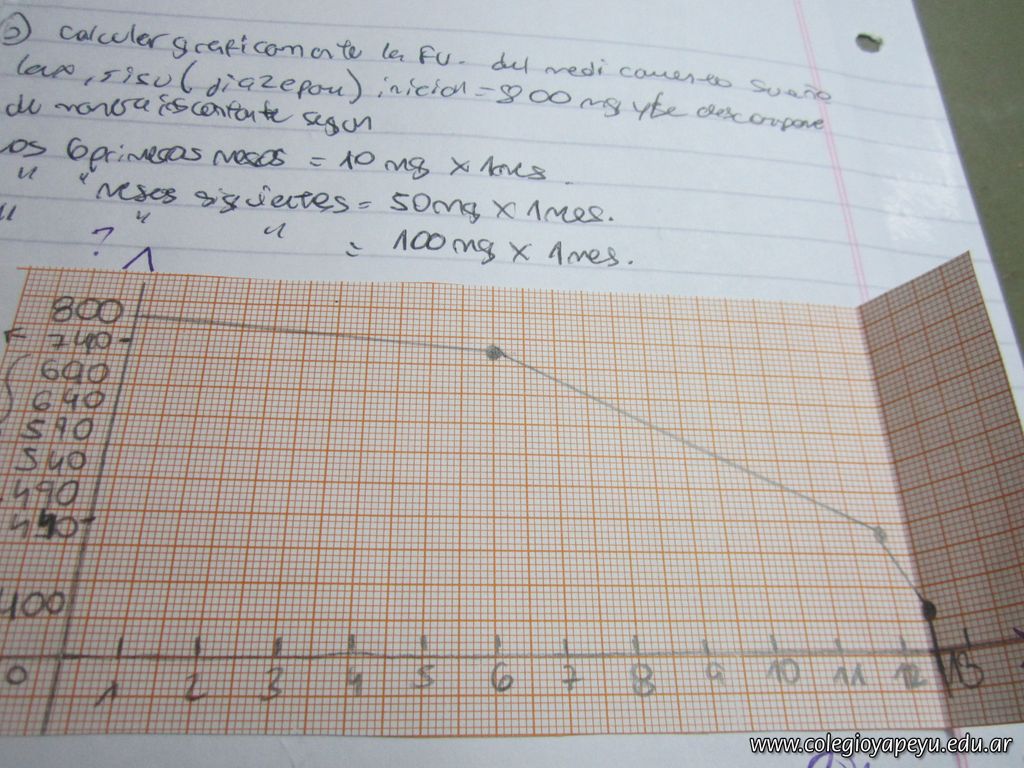 calcular graficamente la FU. del medicamento sueño
(diazepan) inicial = 800 mg y se descompone
de manera segun
os 6 primeros meses = 10 mg x 1 mes.
" " meses siguientes = 50 mg x 1 mes.
" ? " " = 100 mg x 1 mes.
800
740
690
640
590
540
490
440
400
0 1 2 3 4 5 6 7 8 9 10 11 12 13
www.colegioyapeyu.edu.ar